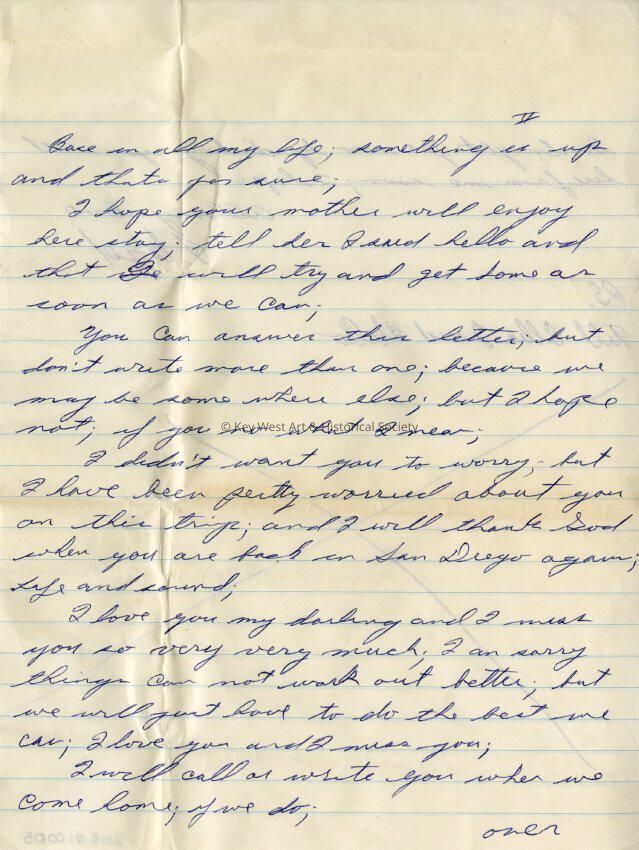 IV
Base in all my life; something is up
and thats for sure;
I hope your mother will enjoy
here stay; tell her I said hello and
that I will try and get home as
soon as we can;
You can answer this letter; but
don't write more than one; because we
may be some where else; but I hope
not; if you no what I mean;
© Key West Art & Historical Society
I didn't want you to worry; but
I have been pertty worried about you
on this trip; and I will thank God
when you are back in San Diego again;
safe and sound;
I love you my darling and I miss
you so very very much; I am sorry
things can not work out better; but
we will just have to do the best we
can; I love you and I miss you;
I will call or write you when we
come home; if we do;
over